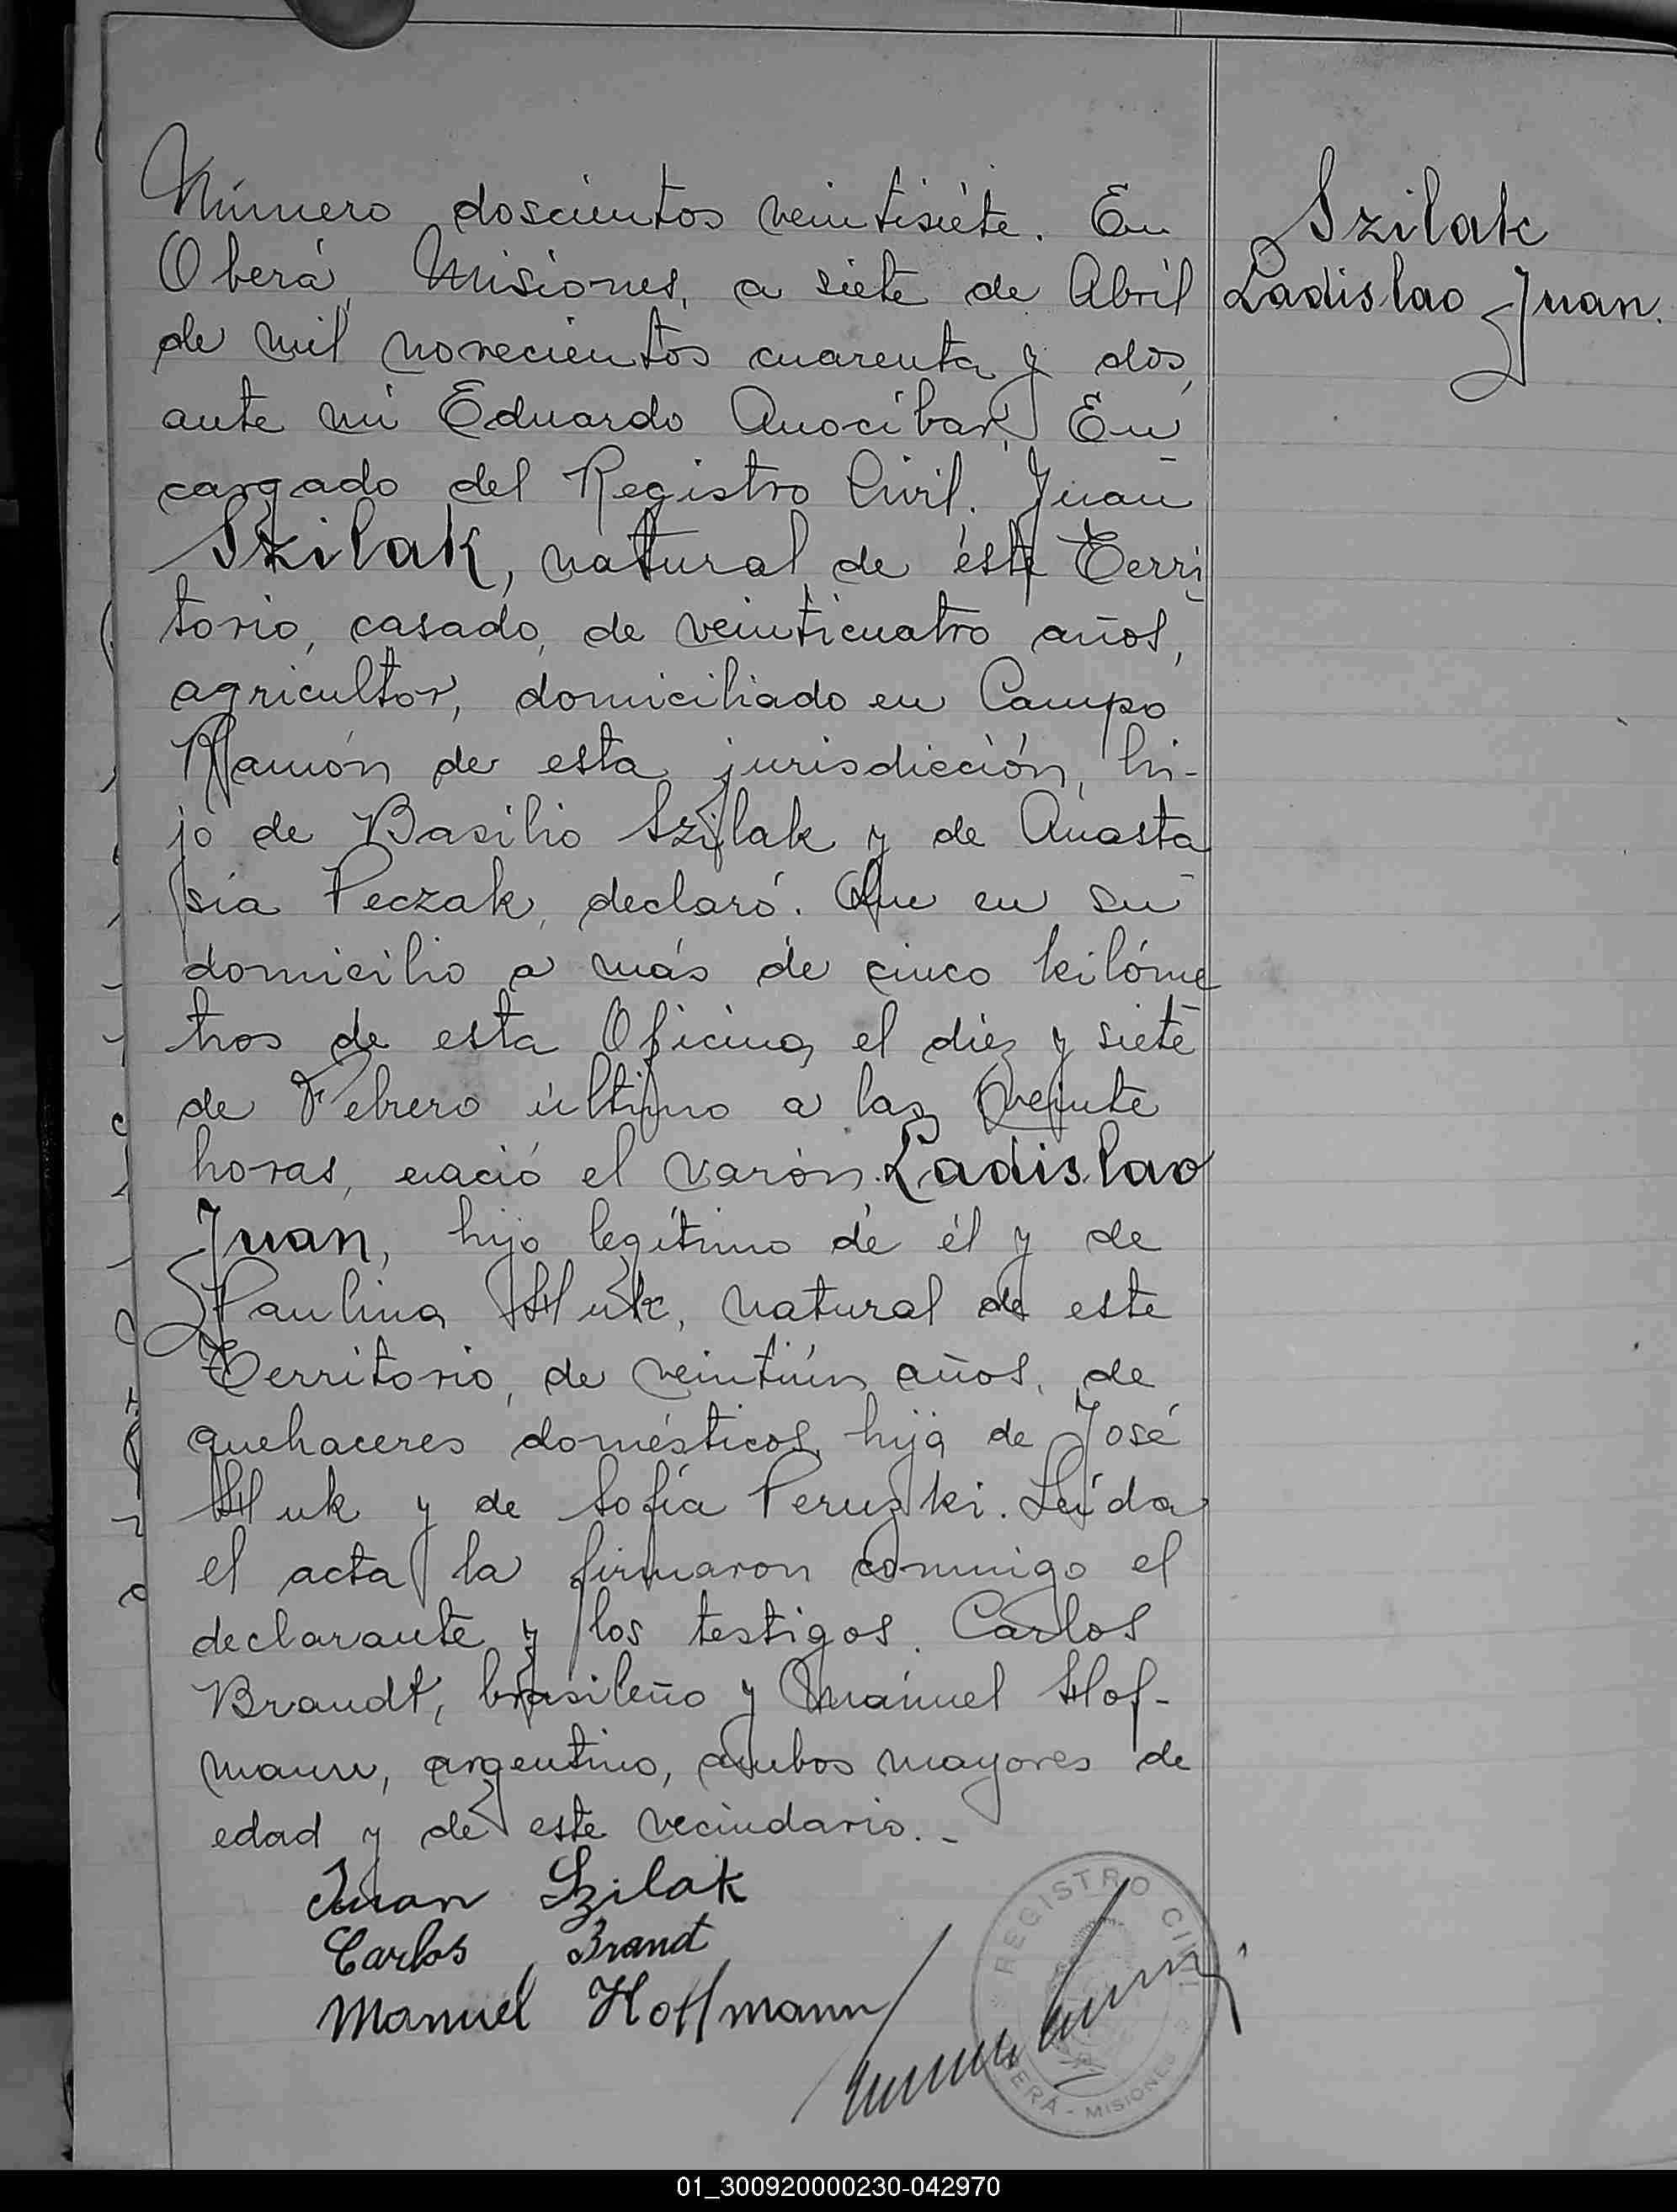 Número doscientos veintisiete. En
Oberá, Misiones, a siete de Abril
de mil novecientos cuarenta y dos,
ante mí Eduardo Anocibar, En
cargado del Registro Civil. Juan
Szilak, natural de éste Terri
torio, casado, de veinticuatro años,
agricultor, domiciliado en Campo
Ramón de esta jurisdicción, hi-
jo de Basilio Szilak y de Anasta
sia Peczak, declaró: Que en su
domicilio a más de cinco kilóme
tros de esta Oficina, el diez y siete
de Febrero último a las veinte
horas, nació el varón Ladislao
Juan, hijo legítimo de él y de
Paulina Huk, natural de este
Territorio, de veintiún años, de
quehaceres domésticos, hija de José
Huk y de Sofía Peruzki. Leída
el acta la firmaron conmigo el
declarante y los testigos. Carlos
Brandt, brasileño y Manuel Hof-
mann, argentino, ambos mayores de
edad y de este vecindario.-
Juan Szilak
Carlos Brand
Manuel Hoffmann
REGISTRO CIVIL
OBERÁ - MISIONES
Szilak
Ladislao Juan.
01_300920000230-042970